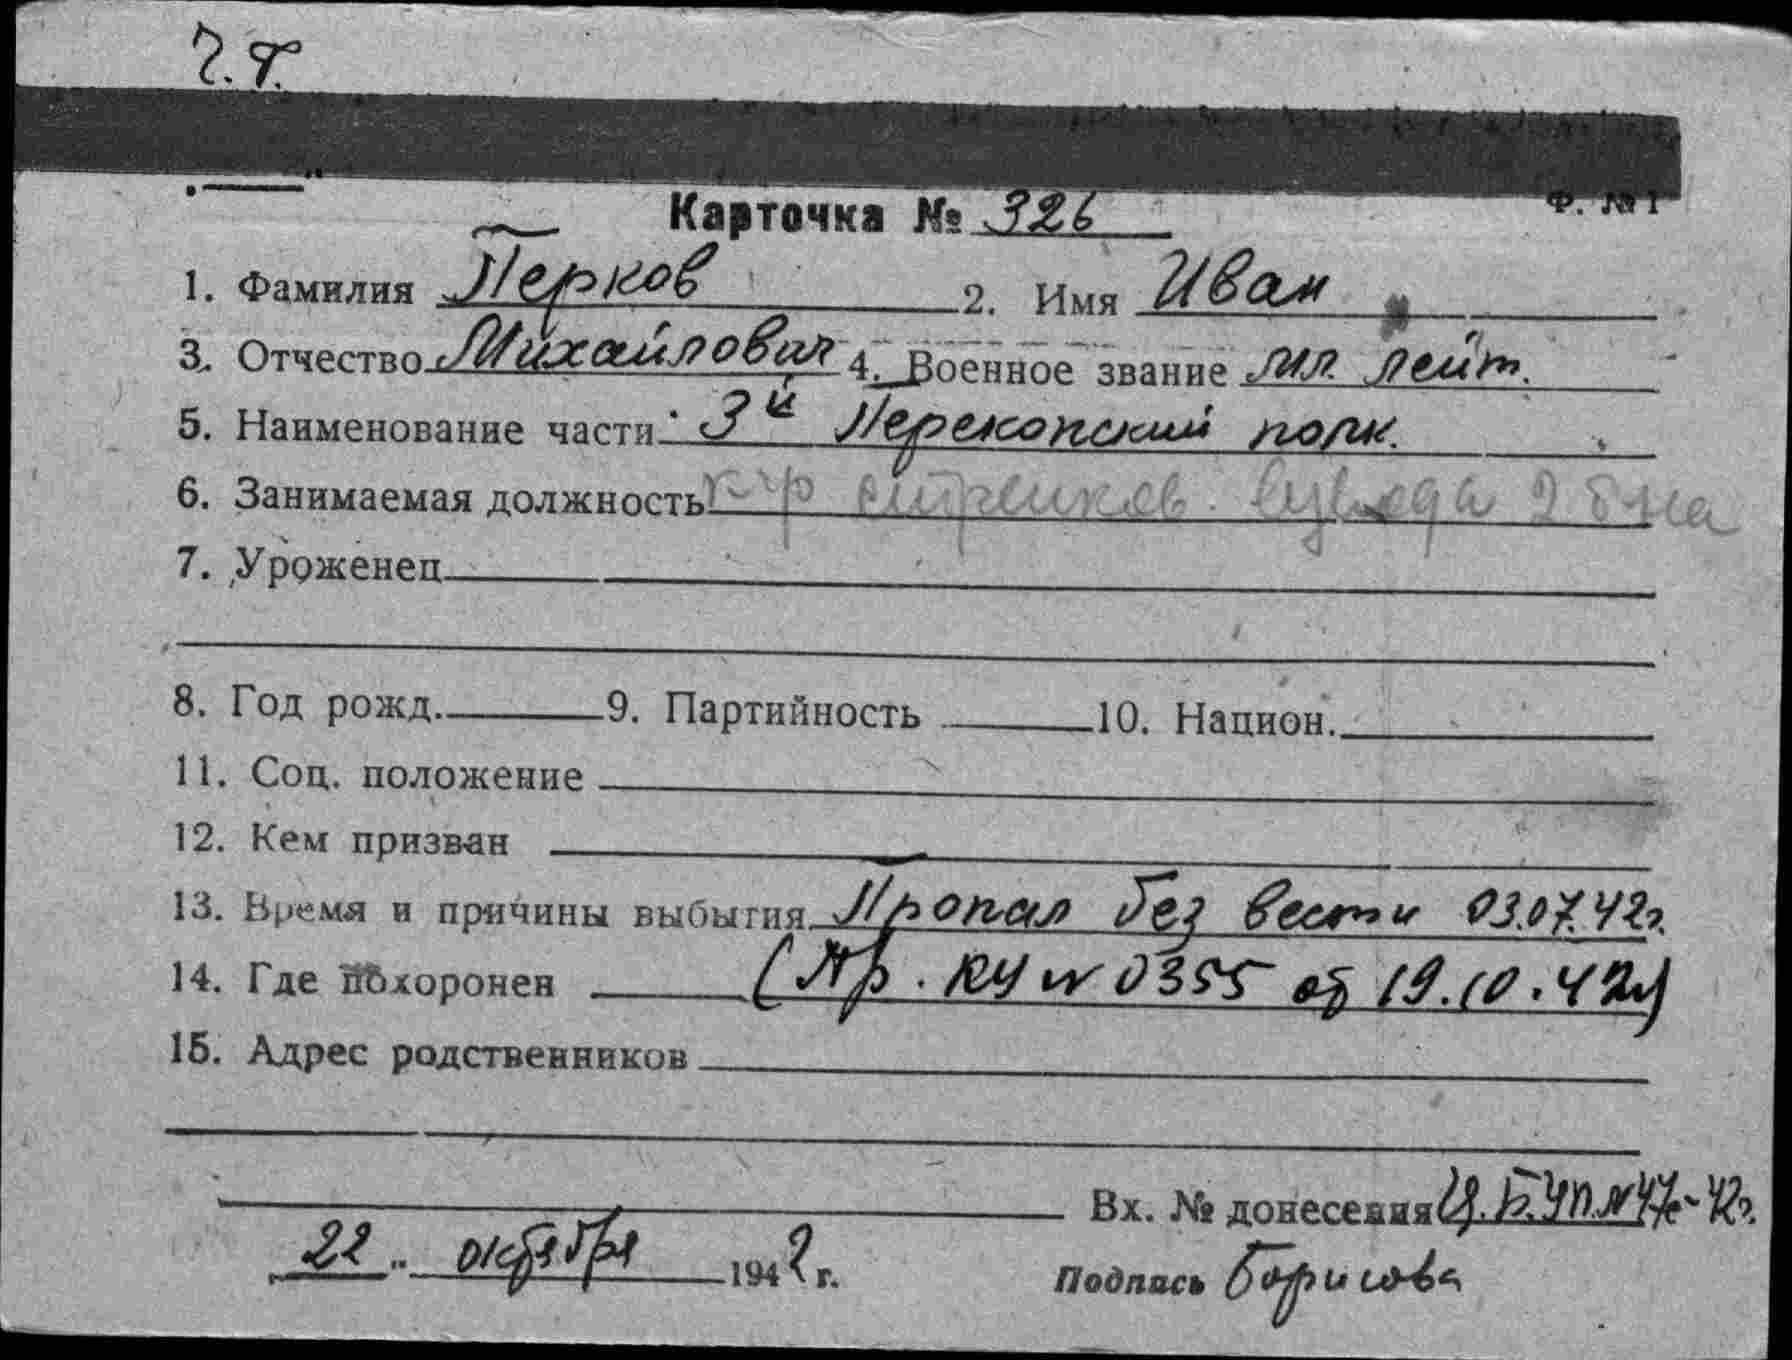 Ф. № 1
Карточка № 326
1. Фамилия Перков 2. Имя Иван
3. Отчество Михайлович 4. Военное звание мл. лейт.
5. Наименование части 3й Перекопский полк.
6. Занимаемая должность к-р стрелков. взвода 2 б-на
7. Уроженец
8. Год рожд. 9. Партийность 10. Национ.
11. Соц. положение
12. Кем призван
13. Время и причины выбытия Пропал без вести 03.07.42г.
14. Где похоронен (Пр. КЧ № 0355 от 19.10.42г)
15. Адрес родственников
Вх. № донесения
22 " октября 1942 г. Подпись Борисова